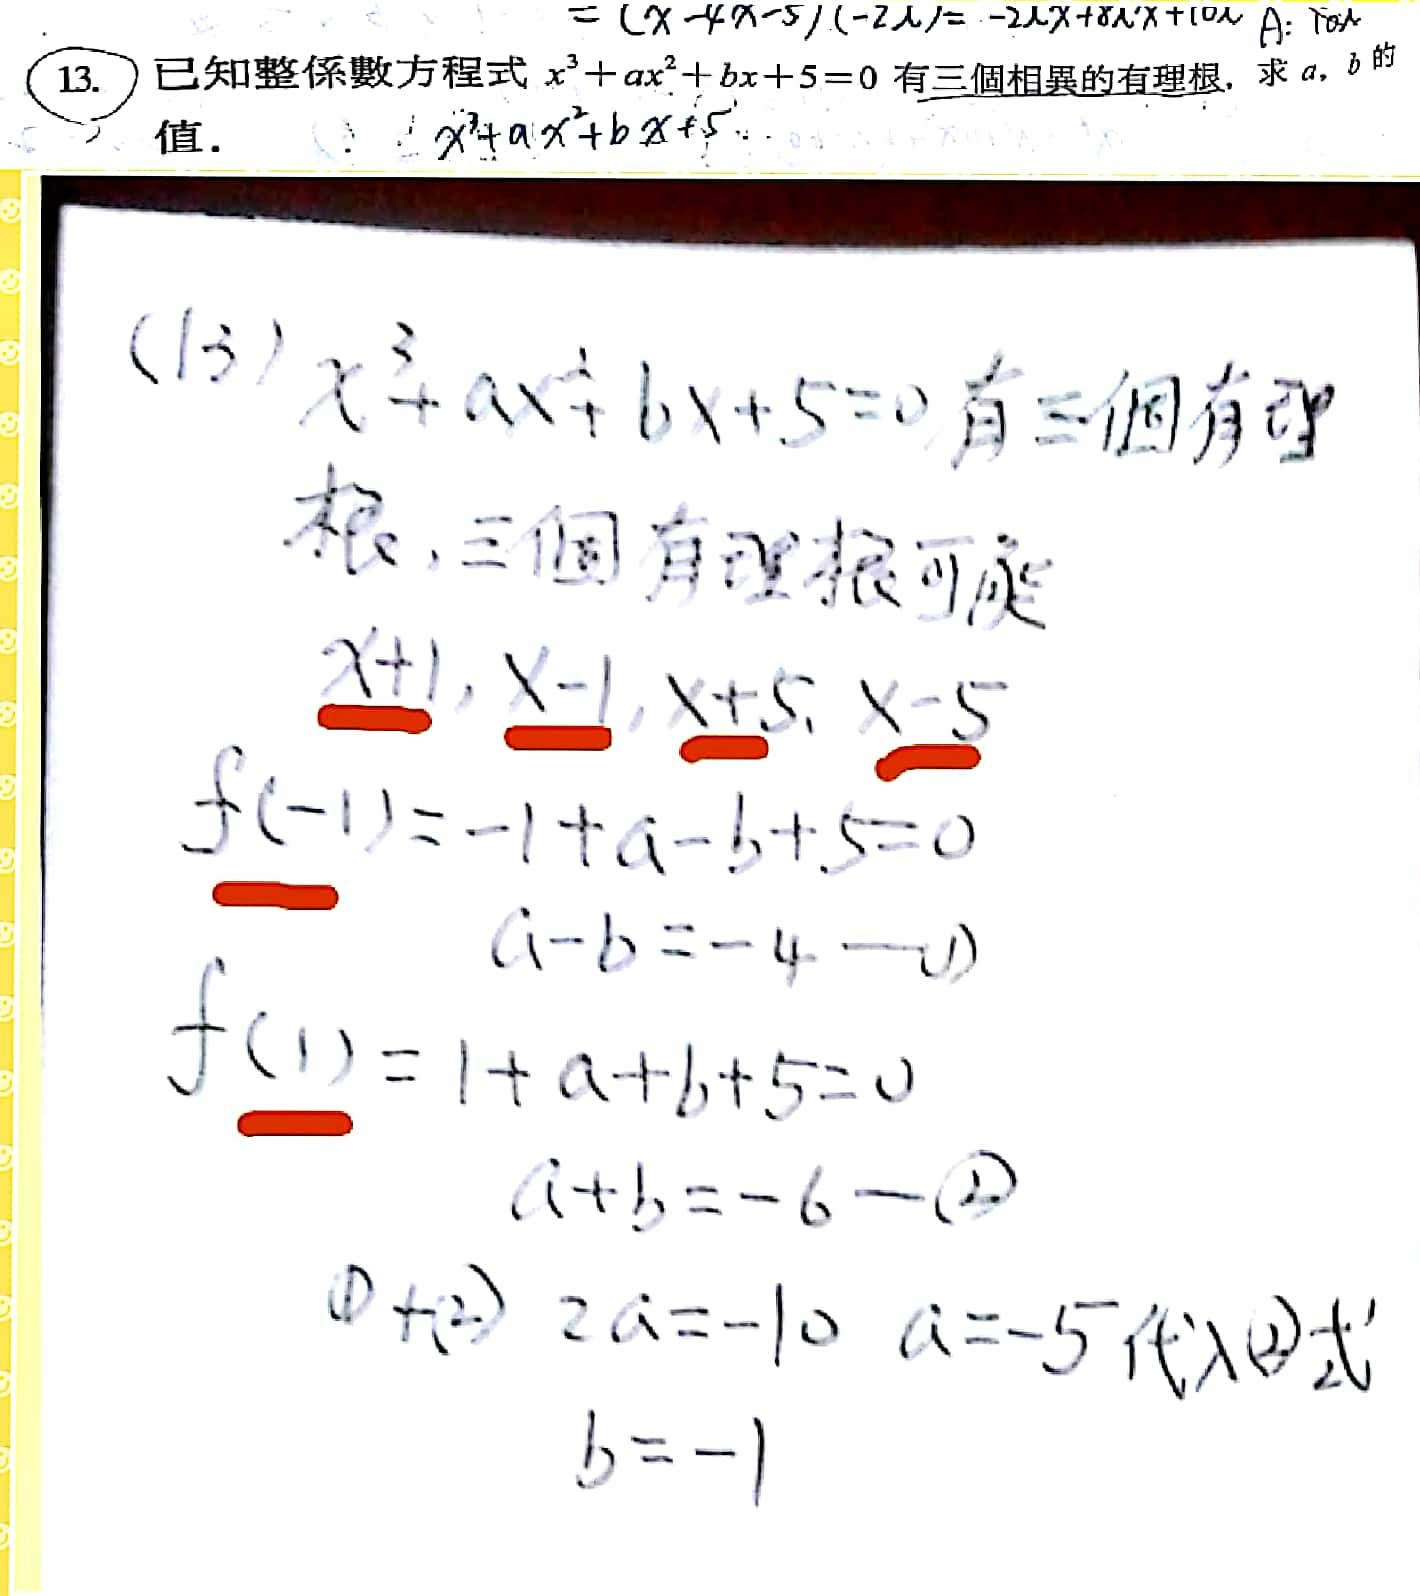 = (x²-4x-5)(-2x)= -2x³+8x²+10x A: 10x
13. 已知整係數方程式 x³+ax²+bx+5=0 有三個相異的有理根, 求 a, b 的
值.
x³+ax²+bx+5
(13) x³+ax²+bx+5=0 有三個有理
根, 三個有理根可能
x+1, x-1, x+5, x-5
f(-1)=-1+a-b+5=0
a-b=-4—①
f(1)=1+a+b+5=0
a+b=-6—②
①+② 2a=-10 a=-5代入②式
b=-1